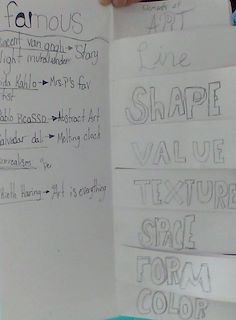 famous
van gogh → Starry
night
Kahlo → Mrs.P's fav
Pablo Picasso → Abstract Art
Salvador dali → Melting clock
Kieth Haring → Art is everything
Elements of
ART
Line
SHAPE
VALUE
TEXTURE
SPACE
FORM
COLOR